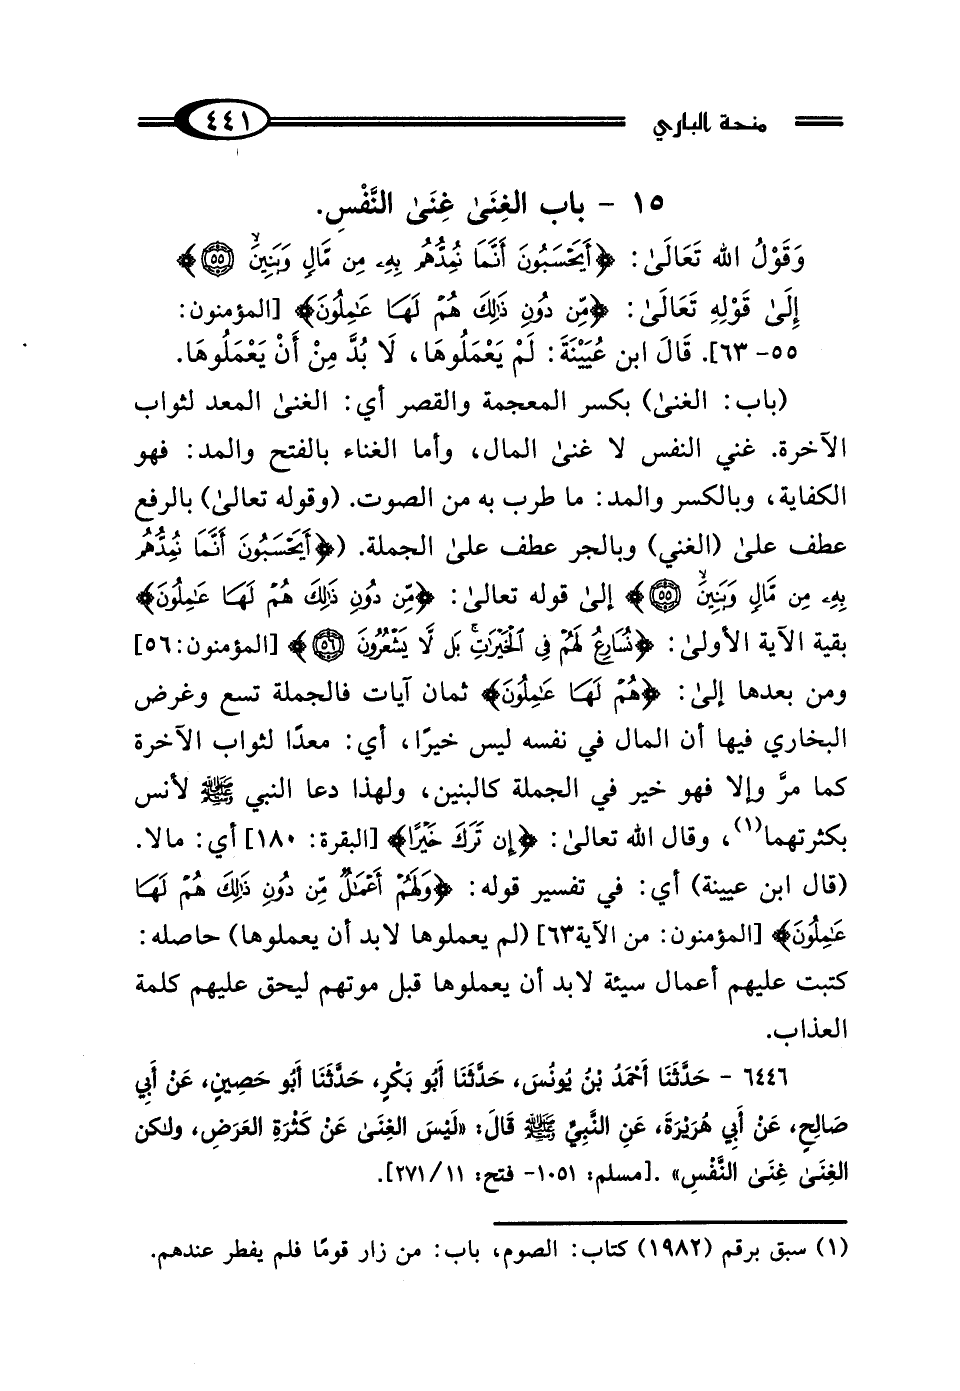 منحة الباري
٤٤١
١٥ - باب الغِنَىٰ غِنَىٰ النَّفْسِ.
وَقَوْلُ الله تَعَالَىٰ: ﴿أَيَحْسَبُونَ أَنَّمَا نُمِدُّهُم بِهِۦ مِن مَّالٍ وَبَنِينَۙ ٥٥﴾
إِلَىٰ قَوْلِهِ تَعَالَىٰ: ﴿مِّن دُونِ ذَٰلِكَ هُمْ لَهَا عَٰمِلُونَ﴾ [المؤمنون:
٥٥- ٦٣]. قَالَ ابن عُيَيْنَةَ: لَمْ يَعْمَلُوهَا، لَا بُدَّ مِنْ أَنْ يَعْمَلُوهَا.
(باب: الغنىٰ) بكسر المعجمة والقصر أي: الغنىٰ المعد لثواب
الآخرة. غني النفس لا غنىٰ المال، وأما الغناء بالفتح والمد: فهو
الكفاية، وبالكسر والمد: ما طرب به من الصوت. (وقوله تعالىٰ) بالرفع
عطف علىٰ (الغني) وبالجر عطف علىٰ الجملة. (﴿أَيَحْسَبُونَ أَنَّمَا نُمِدُّهُم
بِهِۦ مِن مَّالٍ وَبَنِينَۙ ٥٥﴾ إلىٰ قوله تعالىٰ: ﴿مِّن دُونِ ذَٰلِكَ هُمْ لَهَا عَٰمِلُونَ﴾
بقية الآية الأولىٰ: ﴿نُسَارِعُ لَهُمْ فِي الْخَيْرَٰتِۚ بَل لَّا يَشْعُرُونَ ٥٦﴾ [المؤمنون:٥٦]
ومن بعدها إلىٰ: ﴿هُمْ لَهَا عَٰمِلُونَ﴾ ثمان آيات فالجملة تسع وغرض
البخاري فيها أن المال في نفسه ليس خيرًا، أي: معدًا لثواب الآخرة
كما مرَّ وإلا فهو خير في الجملة كالبنين، ولهذا دعا النبي ﷺ لأنس
بكثرتهما(١)، وقال الله تعالىٰ: ﴿إِن تَرَكَ خَيْرًا﴾ [البقرة: ١٨٠] أي: مالا.
(قال ابن عيينة) أي: في تفسير قوله: ﴿وَلَهُمْ أَعْمَٰلٌ مِّن دُونِ ذَٰلِكَ هُمْ لَهَا
عَٰمِلُونَ﴾ [المؤمنون: من الآية٦٣] (لم يعملوها لابد أن يعملوها) حاصله:
كتبت عليهم أعمال سيئة لابد أن يعملوها قبل موتهم ليحق عليهم كلمة
العذاب.
٦٤٤٦ - حَدَّثَنَا أَحْمَدُ بْنُ يُونُسَ، حَدَّثَنَا أَبُو بَكْرٍ، حَدَّثَنَا أَبُو حَصِينٍ، عَنْ أَبِي
صَالِحٍ، عَنْ أَبِي هُرَيْرَةَ، عَنِ النَّبِيِّ ﷺ قَالَ: «لَيْسَ الغِنَىٰ عَنْ كَثْرَةِ العَرَضِ، ولٰكن
الغِنَىٰ غِنَىٰ النَّفْسِ» .[مسلم: ١٠٥١- فتح: ١١/ ٢٧١].
(١) سبق برقم (١٩٨٢) كتاب: الصوم، باب: من زار قومًا فلم يفطر عندهم.